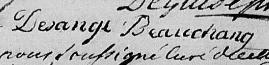 Desange Beauchang
nous soussigné curé de cette